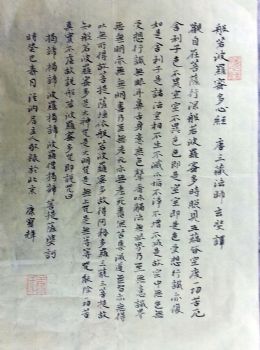 般若波羅蜜多心經 唐三藏法師玄奘譯
觀自在菩薩行深般若波羅蜜多時照見五蘊皆空度一切苦厄
舍利子色不異空空不異色色即是空空即是色受想行識亦復
如是舍利子是諸法空相不生不滅不垢不淨不增不減是故空中無色無
受想行識無眼耳鼻舌身意無色聲香味觸法無眼界乃至無意識界
無無明亦無無明盡乃至無老死亦無老死盡無苦集滅道無智亦無得
以無所得故菩提薩埵依般若波羅蜜多故得阿耨多羅三藐三菩提故
知般若波羅蜜多是大神咒是大明咒是無上咒是無等等咒能除一切苦
真實不虛故說般若波羅蜜多咒即說咒曰
揭諦揭諦波羅揭諦波羅僧揭諦菩提薩婆訶
時癸巳春月 居士敬錄於北京 康寶